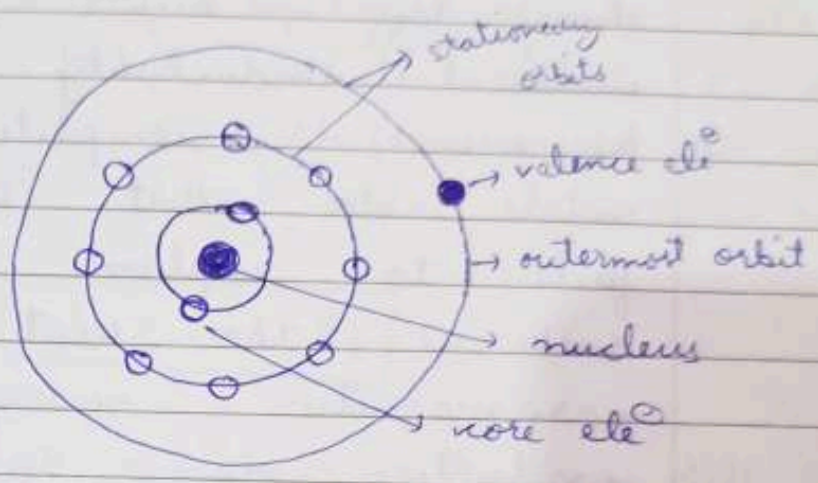 stationary
orbits
valence ele⊖
outermost orbit
nucleus
core ele⊖